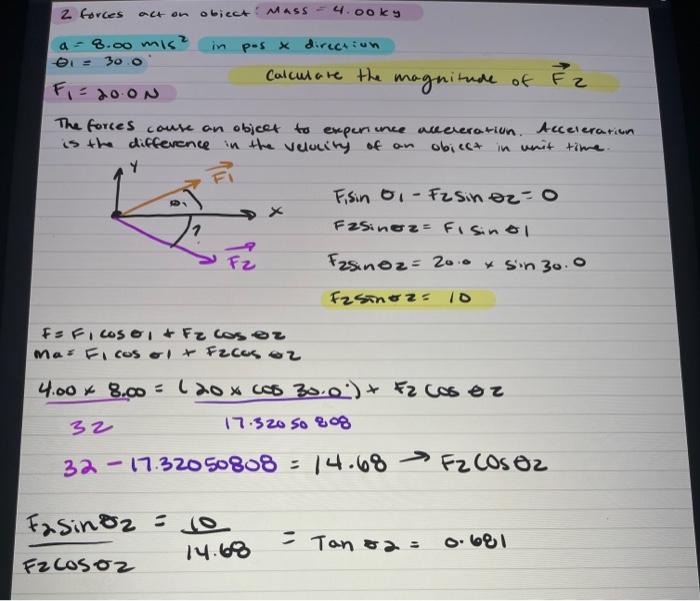 2 forces act on object: Mass = 4.00kg
a = 8.00 m/s² in pos x direction
θ1 = 30.0°
F1 = 20.0 N
Calculate the magnitude of F2
The forces cause an object to experience acceleration. Acceleration
is the difference in the velocity of an object in unit time.
Y
F1
θ1
x
?
F2
F1sin θ1 - F2 sin θ2 = 0
F2 sin θ2 = F1 sin θ1
F2sin θ2 = 20.0 x sin 30.0
F2 sin θ2 = 10
F = F1 cos θ1 + F2 cos θ2
Ma = F1 cos θ1 + F2 cos θ2
4.00 x 8.00 = (20 x cos 30.0°) + F2 cos θ2
32
17.32050808
32 - 17.32050808 = 14.68 → F2 cos θ2
F2 sin θ2 = 10 = Tan θ2 = 0.681
F2 cos θ2 14.68